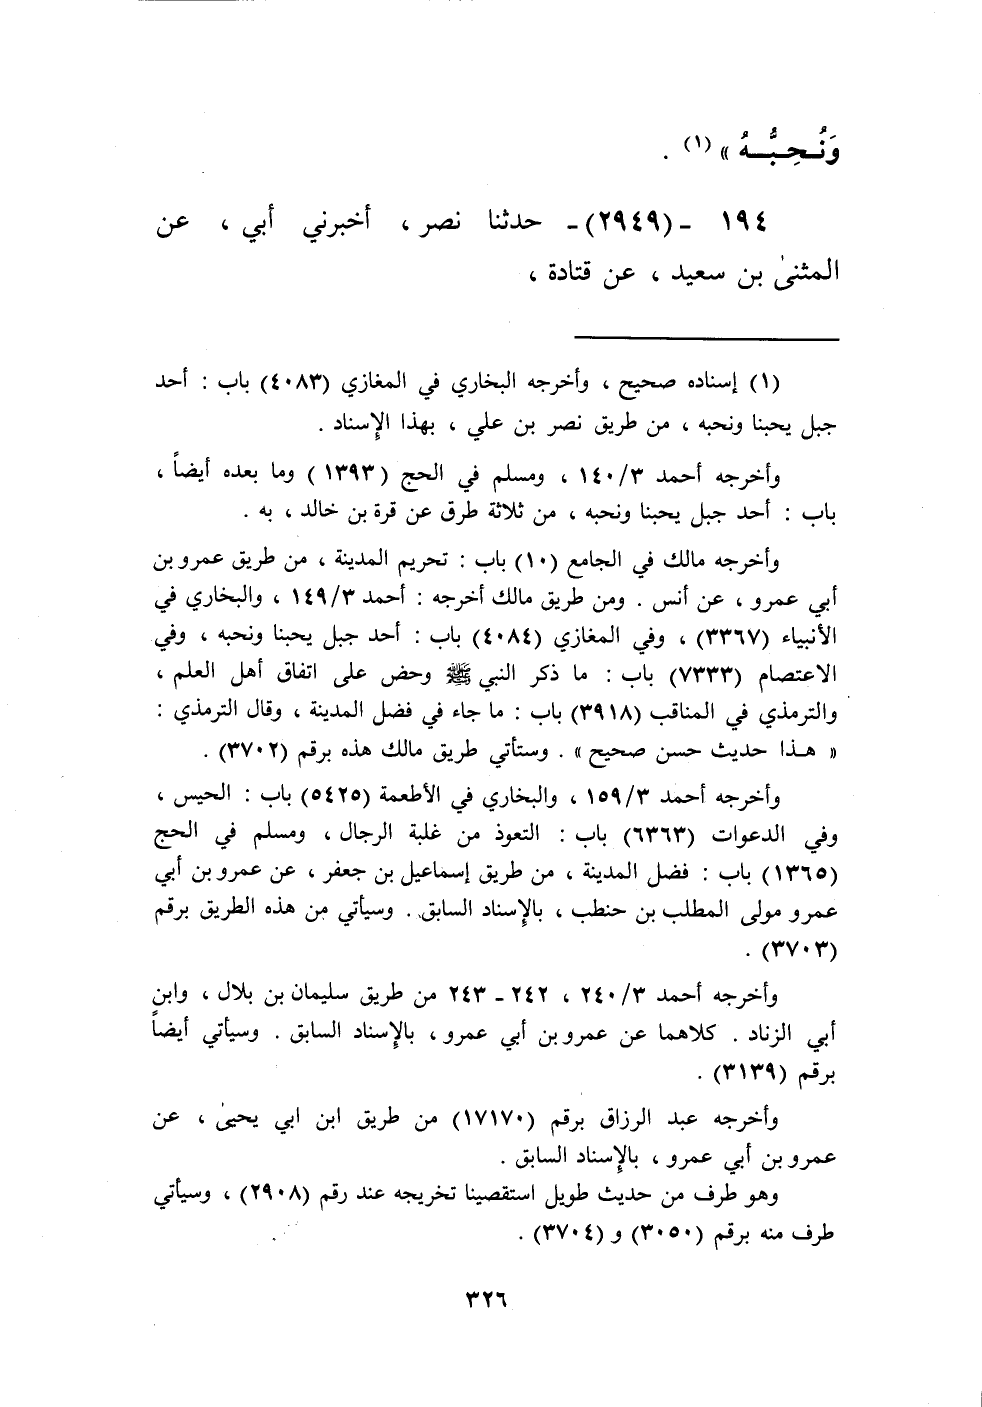 وَنُحِبُّهُ » (١) .
١٩٤ ـ (٢٩٤٩)ـ حدثنا نصر ، أخبرني أبي ، عن
المثنىٰ بن سعيد ، عن قتادة ،
(١) إسناده صحيح ، وأخرجه البخاري في المغازي (٤٠٨٣) باب : أحد
جبل يحبنا ونحبه ، من طريق نصر بن علي ، بهذا الإسناد .
وأخرجه أحمد ١٤٠/٣ ، ومسلم في الحج (١٣٩٣ ) وما بعده أيضاً ،
باب : أحد جبل يحبنا ونحبه ، من ثلاثة طرق عن قرة بن خالد ، به .
وأخرجه مالك في الجامع (١٠) باب : تحريم المدينة ، من طريق عمرو بن
أبي عمرو ، عن أنس . ومن طريق مالك أخرجه : أحمد ١٤٩/٣ ، والبخاري في
الأنبياء (٣٣٦٧) ، وفي المغازي (٤٠٨٤) باب : أحد جبل يحبنا ونحبه ، وفي
الاعتصام (٧٣٣٣) باب : ما ذكر النبي ﷺ وحض على اتفاق أهل العلم ،
والترمذي في المناقب (٣٩١٨) باب : ما جاء في فضل المدينة ، وقال الترمذي :
« هذا حديث حسن صحيح » . وستأتي طريق مالك هذه برقم (٣٧٠٢) .
وأخرجه أحمد ١٥٩/٣ ، والبخاري في الأطعمة (٥٤٢٥) باب : الحيس ،
وفي الدعوات (٦٣٦٣) باب : التعوذ من غلبة الرجال ، ومسلم في الحج
(١٣٦٥) باب : فضل المدينة ، من طريق إسماعيل بن جعفر ، عن عمرو بن أبي
عمرو مولى المطلب بن حنطب ، بالإسناد السابق . وسيأتي من هذه الطريق برقم
(٣٧٠٣) .
وأخرجه أحمد ٢٤٠/٣ ، ٢٤٢ ـ ٢٤٣ من طريق سليمان بن بلال ، وابن
أبي الزناد . كلاهما عن عمرو بن أبي عمرو ، بالإسناد السابق . وسيأتي أيضاً
برقم (٣١٣٩) .
وأخرجه عبد الرزاق برقم (١٧١٧٠) من طريق ابن ابي يحيىٰ ، عن
عمرو بن أبي عمرو ، بالإسناد السابق .
وهو طرف من حديث طويل استقصينا تخريجه عند رقم (٢٩٠٨) ، وسيأتي
طرف منه برقم (٣٠٥٠) و (٣٧٠٤) .
٣٢٦